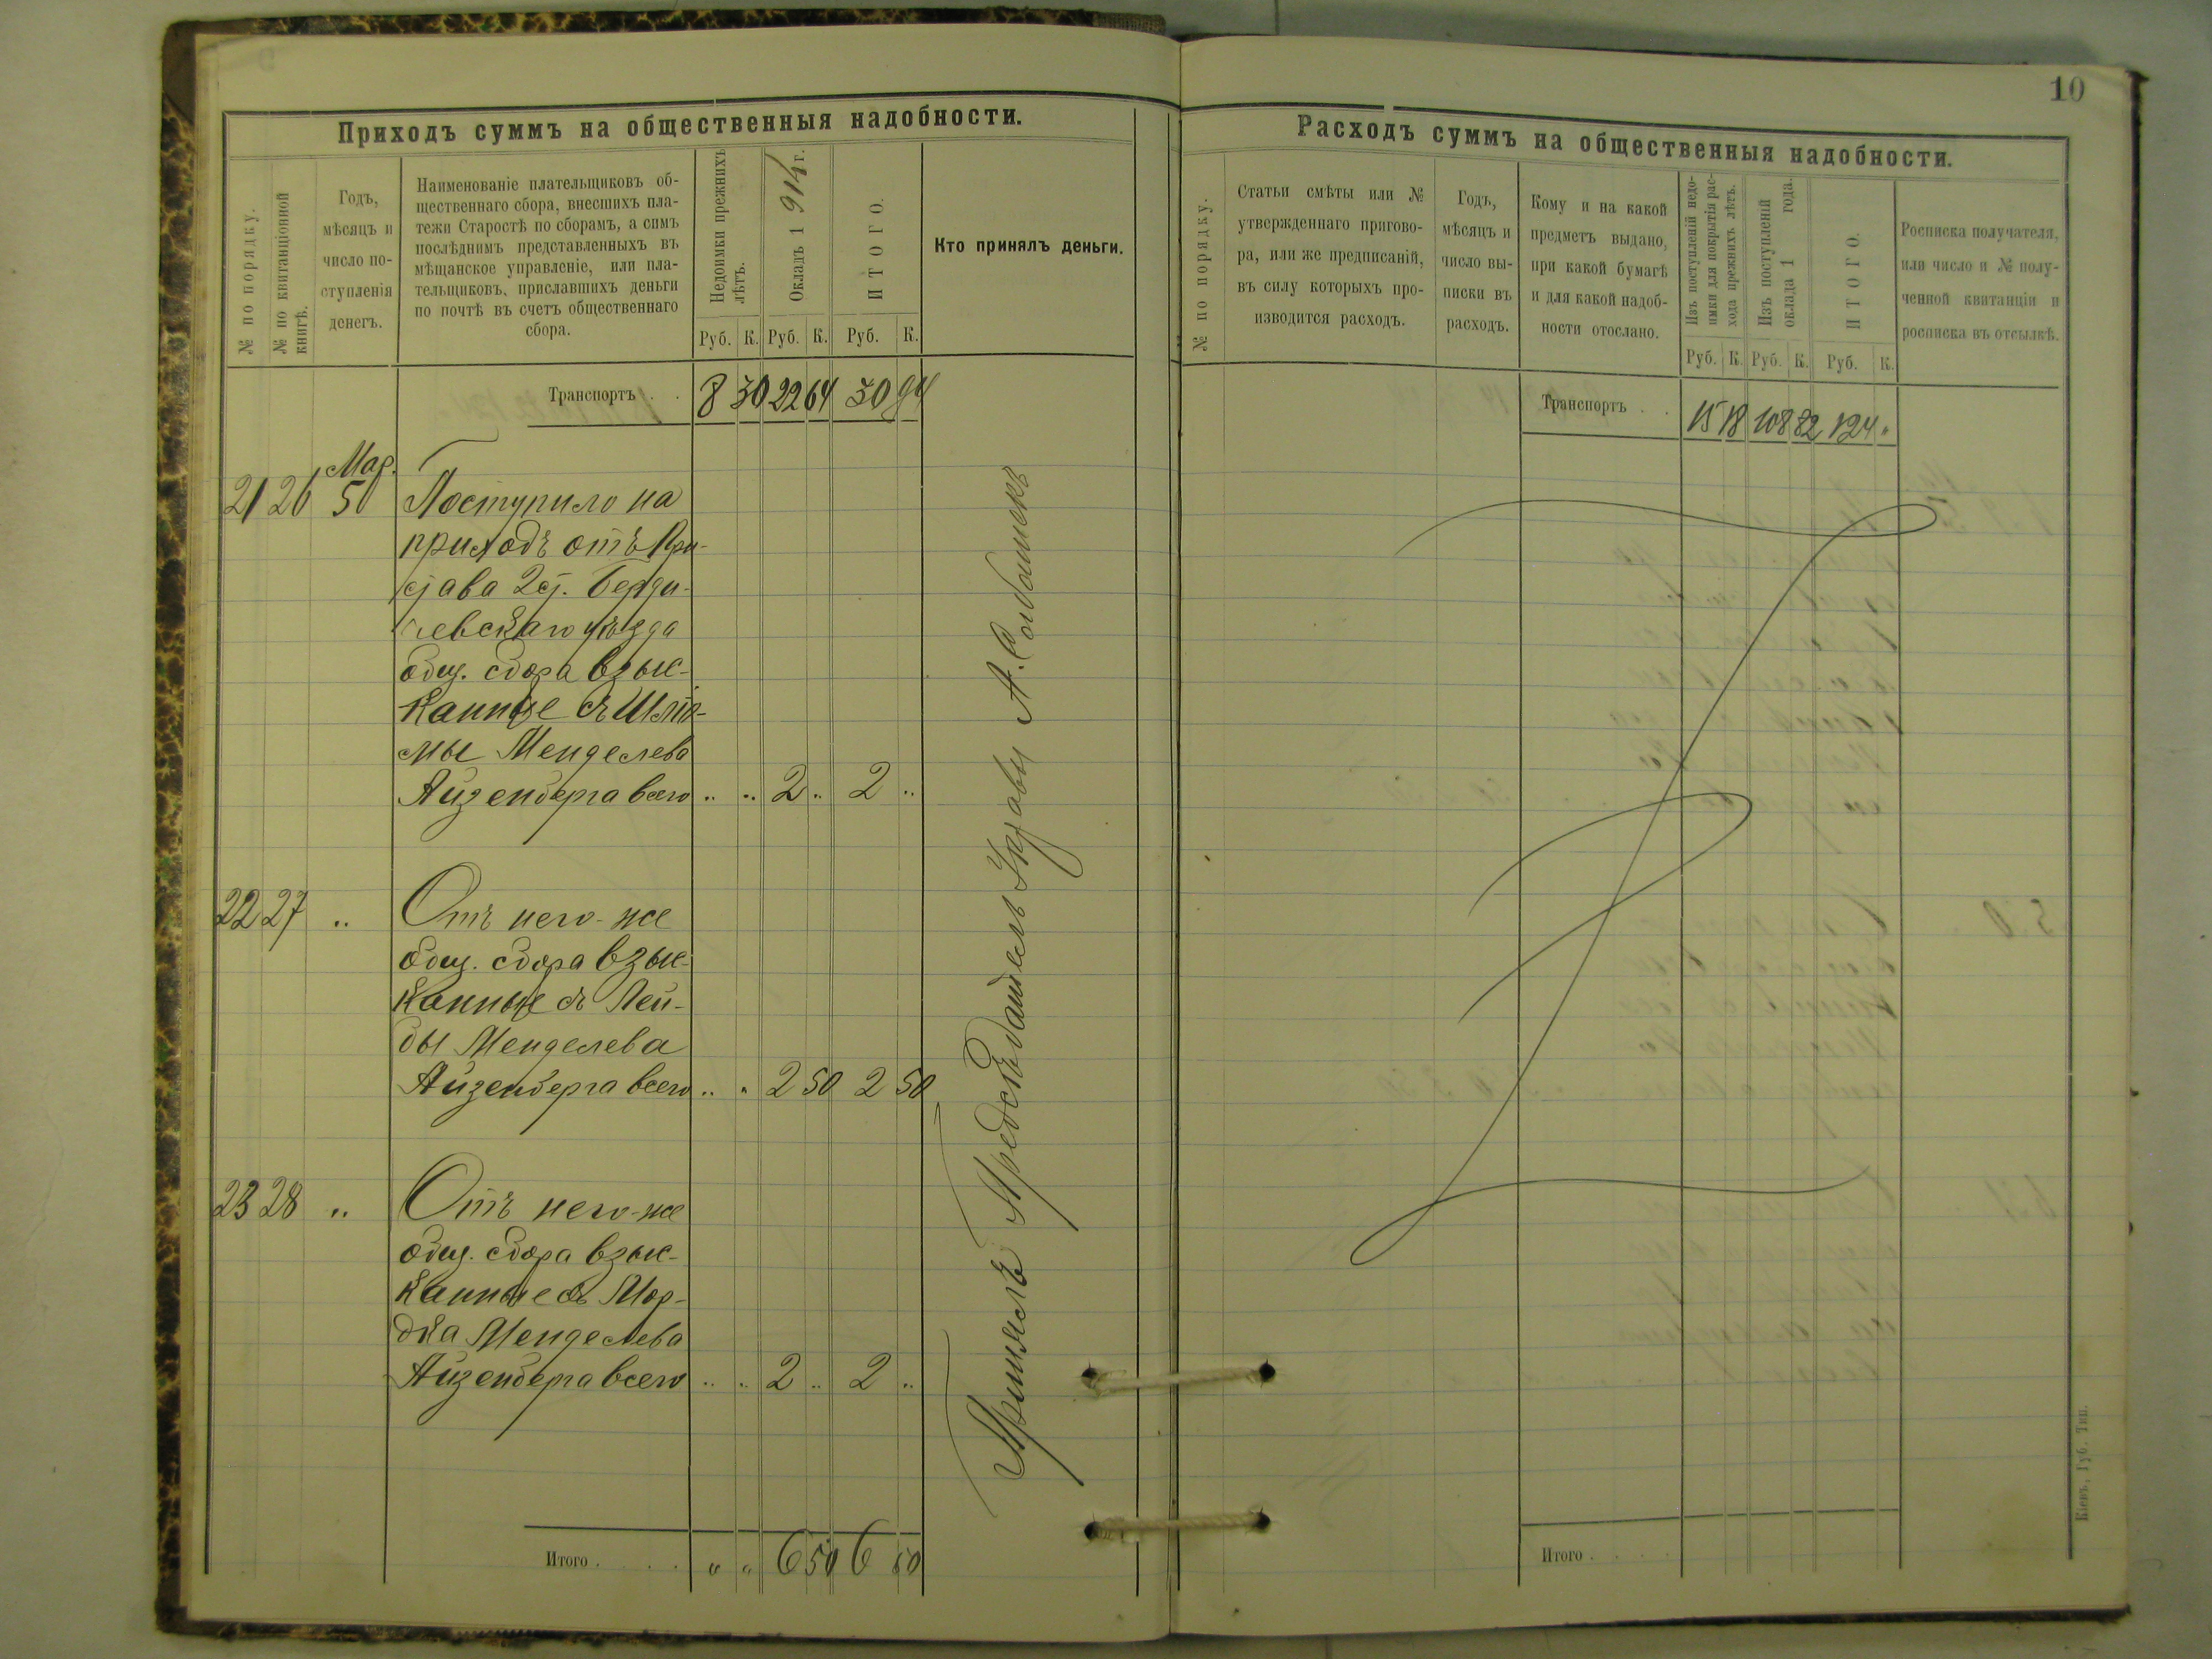 Приходъ суммъ на общественныя надобности.
№ по порядку.
№ по квитанціонной
книгѣ.
Годъ,
мѣсяцъ и
число по-
ступленія
денегъ.
Наименованіе плательщиковъ об-
щественнаго сбора, внесшихъ пла-
тежи Старостѣ по сборамъ, а симъ
послѣднимъ представленныхъ въ
мѣщанское управленіе, или пла-
тельщиковъ, приславшихъ деньги
по почтѣ въ счетъ общественнаго
сбора.
Недоимки прежнихъ
лѣтъ.
Окладъ 1914 г.
ИТОГО.
Кто принялъ деньги.
Руб. К. Руб. К. Руб. К.
Транспортъ . . 8 30 22 64 30 94
Мар.
21 26 5 Поступило на
приходъ отъ При-
става 2 ст. Берди-
чевскаго уѣзда
общ. сбора взыс-
канные съ Шлио-
мы Менделева
Айзенберга всего .. .. 2 .. 2 ..
22 27 .. Отъ него-же
общ. сбора взыс-
канные съ Лей-
бы Менделева
Айзенберга всего .. .. 2 50 2 50
23 28 .. Отъ него-же
общ. сбора взыс-
канные съ Мор-
дка Менделева
Айзенберга всего .. .. 2 .. 2 ..
Принялъ Предсѣдатель Управы А.
Итого . . . . „ „ 6 50 6 50
10
Расходъ суммъ на общественныя надобности.
№ по порядку.
Статьи смѣты или №
утвержденнаго пригово-
ра, или же предписаній,
въ силу которыхъ про-
изводится расходъ.
Годъ,
мѣсяцъ и
число вы-
писки въ
расходъ.
Кому и на какой
предметъ выдано,
при какой бумагѣ
и для какой надоб-
ности отослано.
Изъ поступленій недо-
имки для покрытія рас-
хода прежнихъ лѣтъ.
Изъ поступленій
оклада 1 года.
ИТОГО.
Росписка получателя,
или число и № полу-
ченной квитанціи и
росписка въ отсылкѣ.
Руб. К. Руб. К. Руб. К.
Транспортъ . . 15 18 108 82 124 „
Итого . . . .
Кіевъ, Губ. Тип.